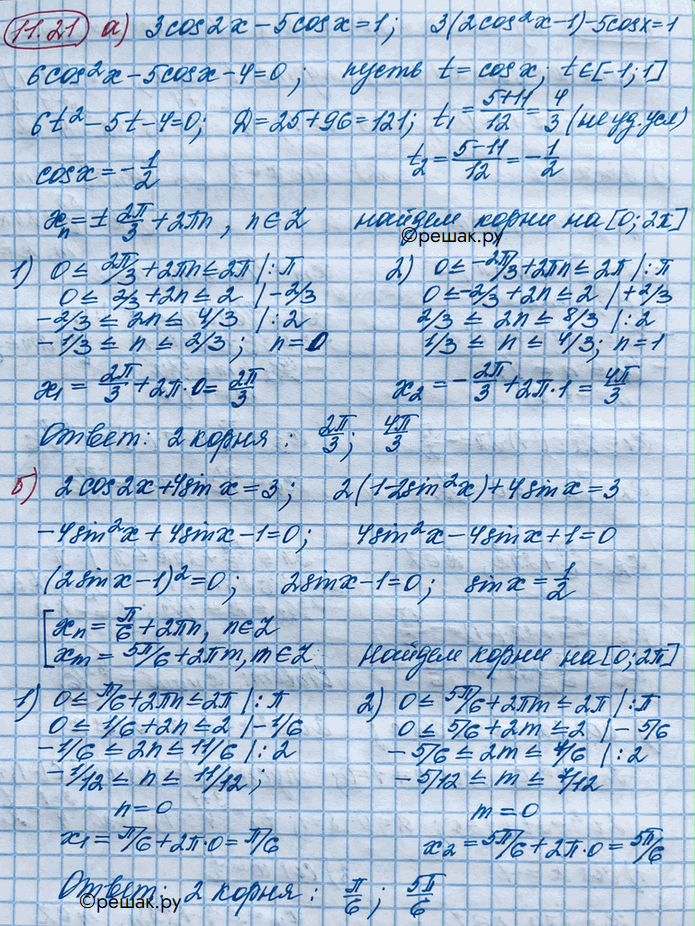 11.21 а) 3cos2x - 5cosx = 1; 3(2cos²x-1)-5cosx=1
6cos²x-5cosx-4=0; пусть t=cosx; t∈[-1;1]
6t²-5t-4=0; Д=25+96=121; t₁=(5+11)/12=4/3 (не уд. усл)
cosx=-1/2 t₂=(5-11)/12=-1/2
xₙ=±2π/3+2πn, n∈Z найдем корни на [0;2π]
©решак.ру
1) 0≤2π/3+2πn≤2π |:π 2) 0≤-2π/3+2πn≤2π |:π
0≤2/3+2n≤2 |-2/3 0≤-2/3+2n≤2 |+2/3
-2/3≤2n≤4/3 |:2 2/3≤2n≤8/3 |:2
-1/3≤n≤2/3; n=0 1/3≤n≤4/3; n=1
x₁=2π/3+2π·0=2π/3 x₂=-2π/3+2π·1=4π/3
Ответ: 2 корня: 2π/3; 4π/3
б) 2cos2x+4sinx=3; 2(1-2sin²x)+4sinx=3
-4sin²x+4sinx-1=0; 4sin²x-4sinx+1=0
(2sinx-1)²=0; 2sinx-1=0; sinx=1/2
[xₙ=π/6+2πn, n∈Z
xₘ=5π/6+2πm, m∈Z найдем корни на [0;2π]
1) 0≤π/6+2πn≤2π |:π 2) 0≤5π/6+2πm≤2π |:π
0≤1/6+2n≤2 |-1/6 0≤5/6+2m≤2 |-5/6
-1/6≤2n≤11/6 |:2 -5/6≤2m≤7/6 |:2
-1/12≤n≤11/12; -5/12≤m≤7/12
n=0 m=0
x₁=π/6+2π·0=π/6 x₂=5π/6+2π·0=5π/6
Ответ: 2 корня: π/6; 5π/6
©решак.ру